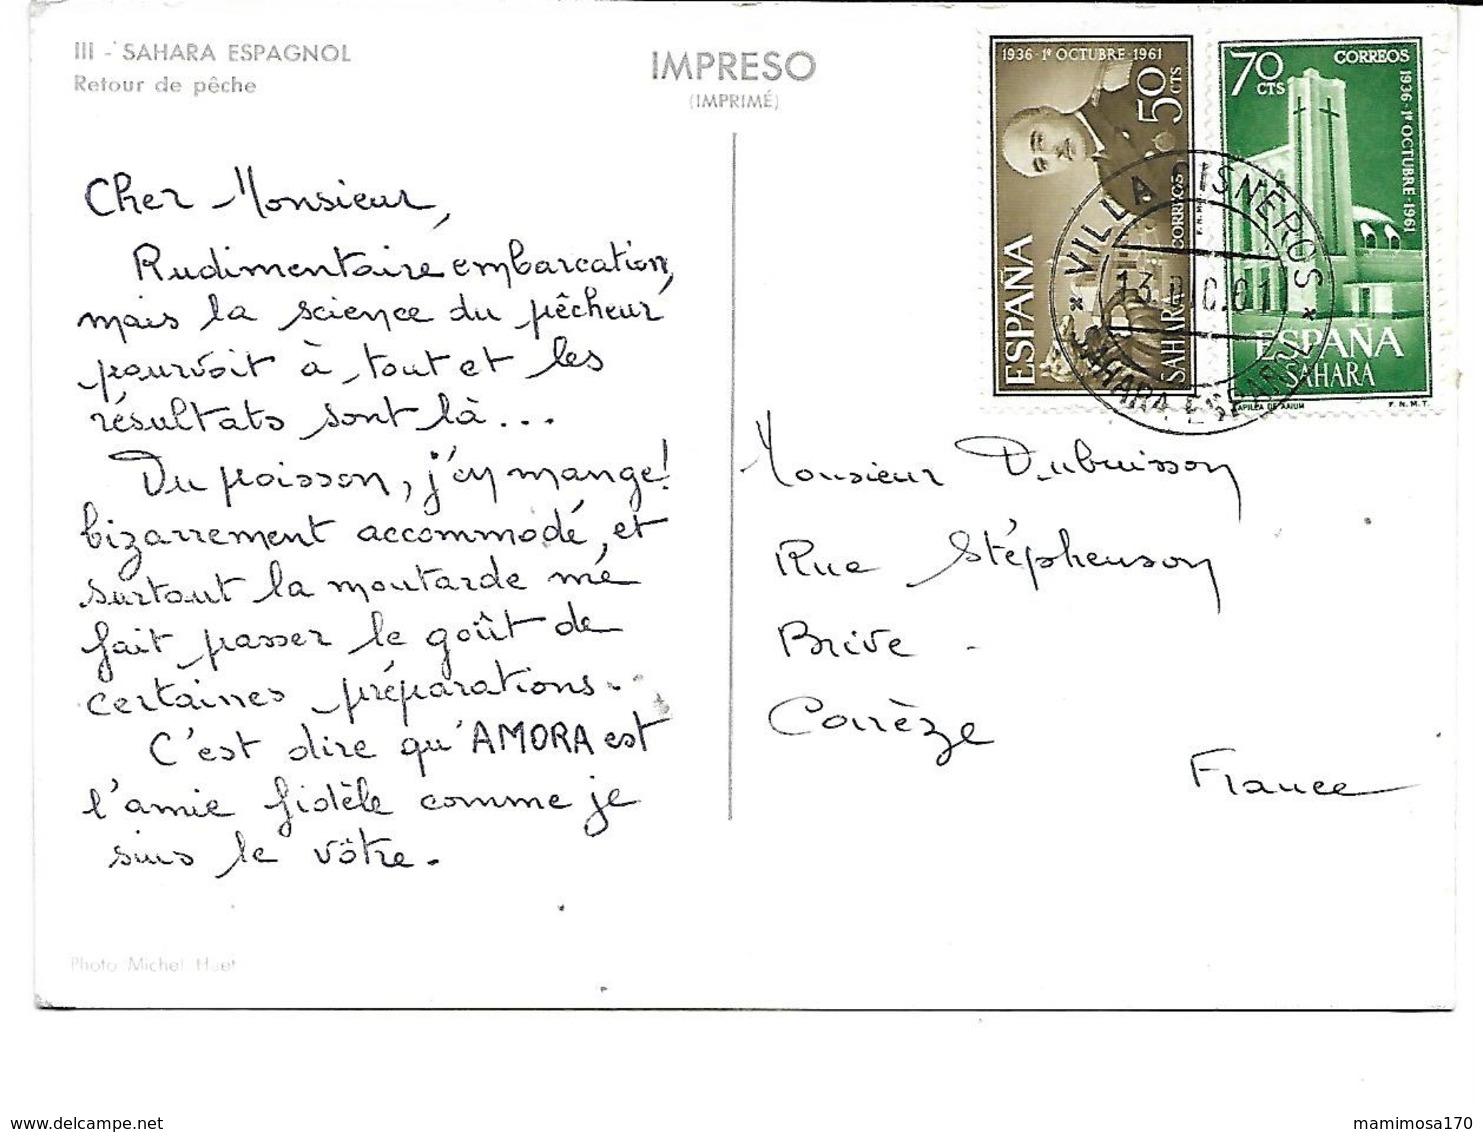 III - SAHARA ESPAGNOL
Retour de pêche
IMPRESO
(IMPRIMÉ)
Cher Monsieur,
Rudimentaire embarcation,
mais la science du pêcheur
pourvoit à tout et les
résultats sont là...
Du poisson, j'en mange!
bizarrement accommodé, et
surtout la moutarde me
fait passer le goût de
certaines préparations.
C'est dire qu'AMORA est
l'amie fidèle comme je
suis le vôtre.
Photo Michel Huet
1936 - 1º OCTUBRE - 1961
50 CTS
CORREOS
ESPAÑA
SAHARA
70 CTS
CORREOS
1936 - 1º OCTUBRE - 1961
ESPAÑA
SAHARA
CAPILLA DE AAIUN
F.N.M.T.
VILLA CISNEROS
13 DIC. 61
SAHARA ESPAÑOL
Monsieur Dubuisson
Rue Stéphenson
Brive -
Corrèze
France
delcampe.net
mamimosa170